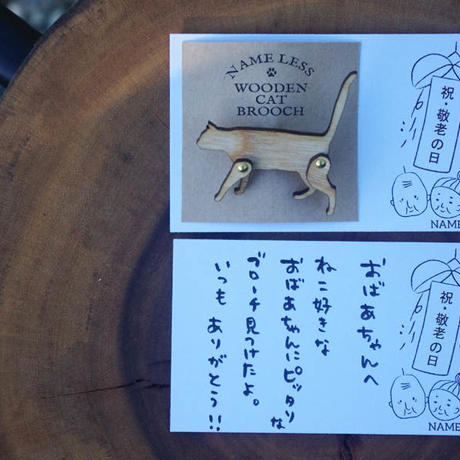 NAME LESS
WOODEN
CAT
BROOCH
祝・敬老の日
NAME
おばあちゃんへ
ねこ好きな
おばあちゃんにピッタリな
ブローチ見つけたよ。
いつも ありがとう!!
祝・敬老の日
NAME